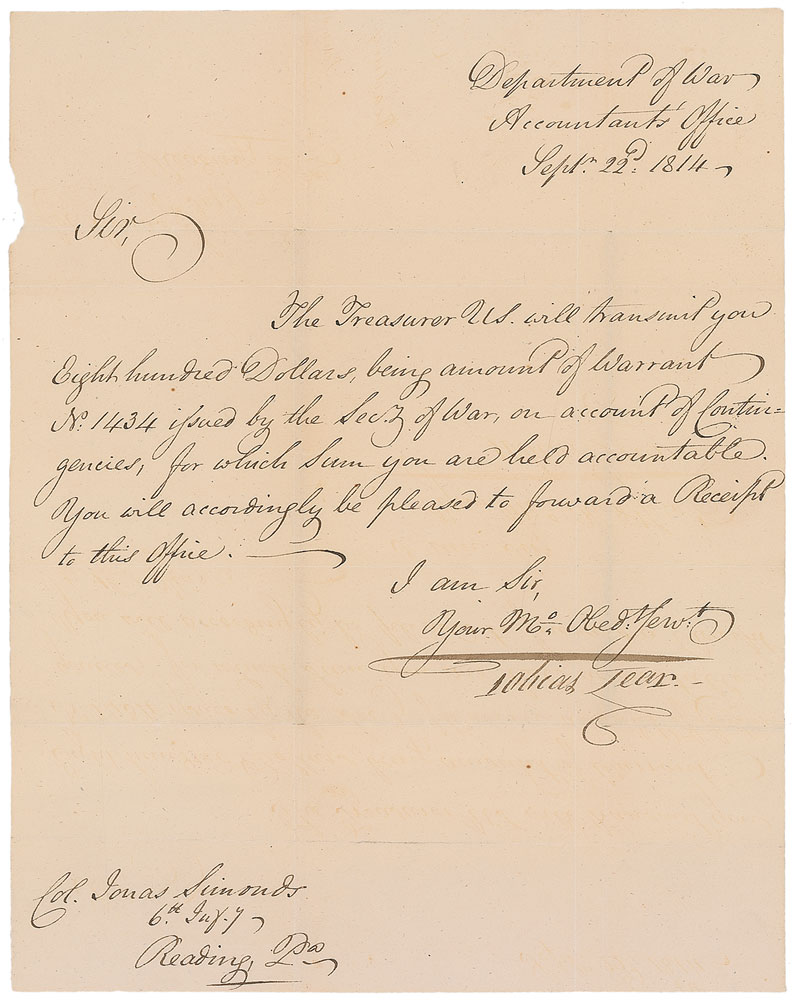 Department of War
Accountants' Office
Sept.r 22d. 1814
Sir,
The Treasurer U.S. will transmit you
Eight hundred Dollars, being amount of Warrant
No. 1434 issued by the Sec.y of War, on account of Contin=
gencies, for which Sum you are held accountable.
You will accordingly be pleased to forward a Receipt
to this Office.
I am Sir,
Your Mo. Obed.t Serv.t
Tobias Lear.
Col. Jonas Simonds
6th Inf.y
Reading, Pa